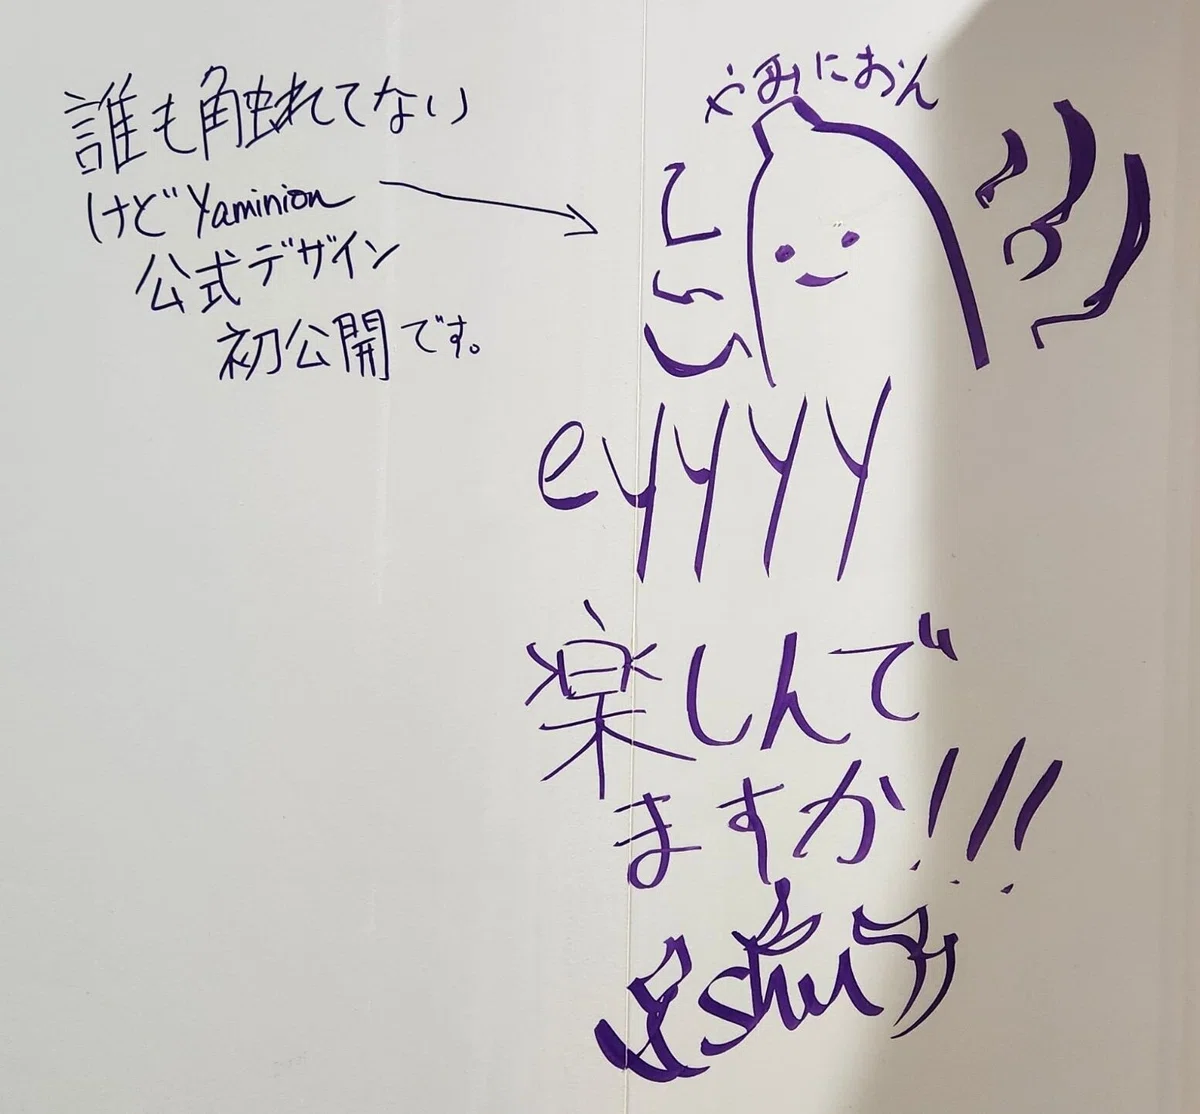 誰も触れてない
けどYaminion
公式デザイン
初公開です。
やみにおん
eyyyy
楽しんで
ますか!!!